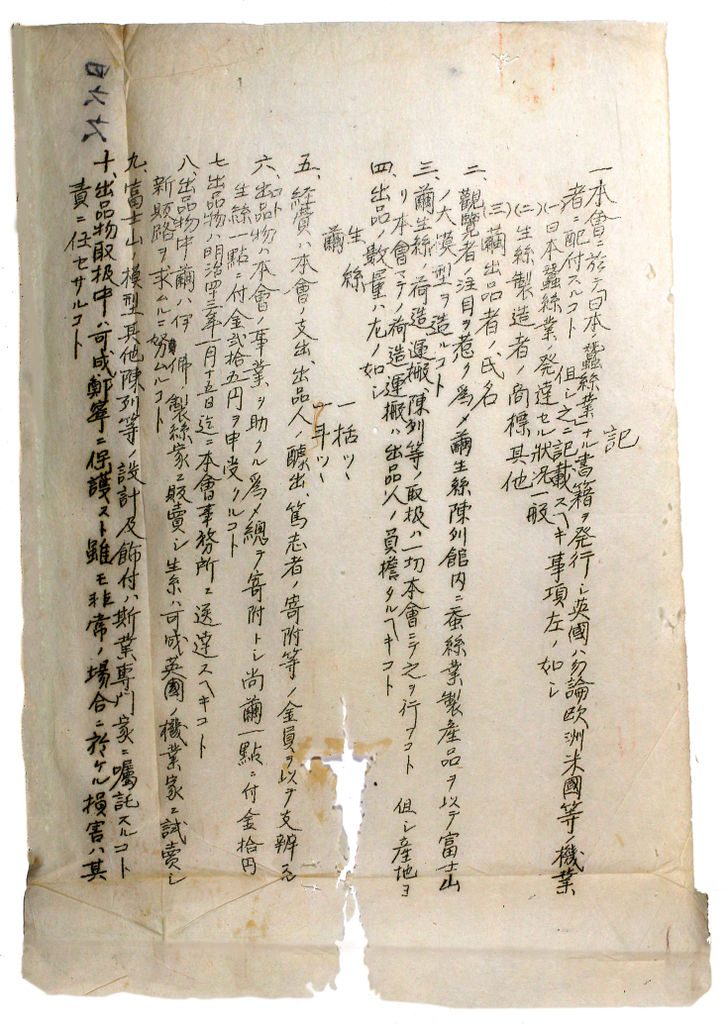 記
一本會ニ於テ「日本ノ蠶絲業」ナル書籍ヲ発行シ英國ハ勿論欧洲米國等ノ機業
者ニ配付スルコト 但シ之ニ記載スヘキ事項左ノ如シ
(一)日本蠶絲業ノ発達セル狀況一般
(二)生絲製造者ノ商標其他
(三)繭出品者ノ氏名
二、觀覽者ノ注目ヲ惹ク爲メ繭生絲陳列館内ニ蚕絲業製産品ヲ以テ富士山
ノ大模型ヲ造ルコト
三、繭生絲ノ荷造運搬、陳列等ノ取扱ハ一切本會ニテ之ヲ行フコト 但シ産地ヨ
リ本會マテノ荷造運搬ハ出品人ノ負擔タルヘキコト
四、出品ノ數量ハ左ノ如シ
生絲 一括ツヽ
繭 一斗ツヽ
五、経費ハ本會ノ支出、出品人ノ醵出、篤志者ノ寄附等ノ金員ヲ以テ支辨スルコト
六、出品物ハ本會ノ事業ヲ助クル爲メ總テ寄附トシ尚繭一點ニ付金拾円
生絲一點ニ付金貳拾五円ヲ申受クルコト
七、出品物ハ明治四十三年一月十五日迄ニ本會事務所ニ送達スヘキコト
八、出品物中繭ハ伊佛ノ製絲家ニ販賣シ生糸ハ可成英國ノ機業家ニ試賣シ
新販路ヲ求ムルニ努ムルコト
九、富士山ノ模型其他陳列等ノ設計及飾付ハ斯業専門家ニ囑託スルコト
十、出品物取扱中ハ可成鄭寧ニ保護スト雖モ非常ノ場合ニ於ケル損害ハ其
責ニ任セサルコト
四六六